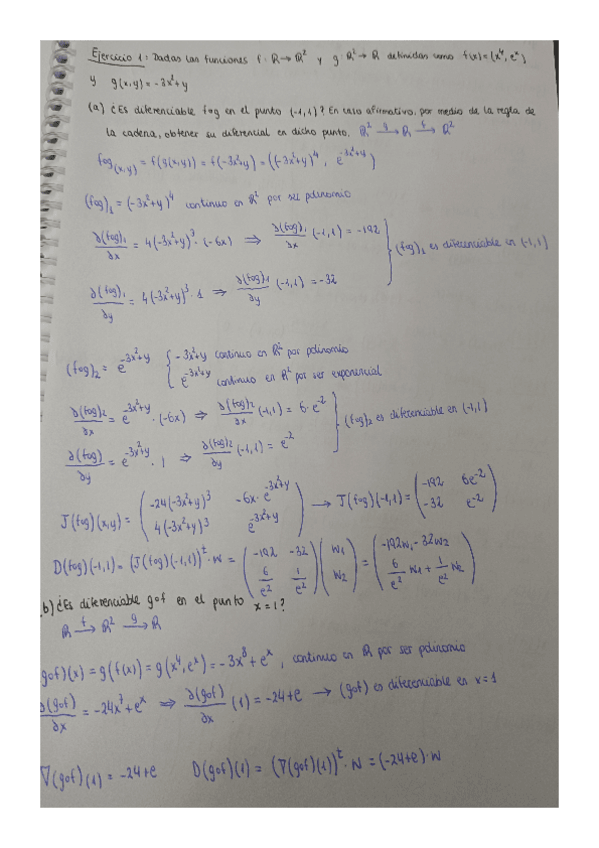 Ejercicio 1: Dadas las funciones f: R→R² y g: R²→R definidas como f(x)=(x⁴, eˣ)
y g(x,y)=-3x²+y
(a) ¿Es diferenciable fog en el punto (-1,1)? En caso afirmativo, por medio de la regla de
la cadena, obtener su diferencial en dicho punto. R² →g R →f R²
fog(x,y) = f(g(x,y)) = f(-3x²+y) = ((-3x²+y)⁴, e^(-3x²+y))
(fog)₁ = (-3x²+y)⁴ continuo en R² por ser polinomio
∂(fog)₁/∂x = 4(-3x²+y)³·(-6x) ⇒ ∂(fog)₁/∂x (-1,1) = -192
(fog)₁ es diferenciable en (-1,1)
∂(fog)₁/∂y = 4(-3x²+y)³·1 ⇒ ∂(fog)₁/∂y (-1,1) = -32
(fog)₂ = e^(-3x²+y) { -3x²+y continuo en R² por polinomio
e^(-3x²+y) continuo en R² por ser exponencial
∂(fog)₂/∂x = e^(-3x²+y)·(-6x) ⇒ ∂(fog)₂/∂x (-1,1) = 6·e⁻²
(fog)₂ es diferenciable en (-1,1)
∂(fog)/∂y = e^(-3x²+y)·1 ⇒ ∂(fog)₂/∂y (-1,1) = e⁻²
J(fog)(x,y) = ( -24(-3x²+y)³ -6x·e^(-3x²+y) ; 4(-3x²+y)³ e^(-3x²+y) ) → J(fog)(-1,1) = ( -192 6e⁻² ; -32 e⁻² )
D(fog)(-1,1) = (J(fog)(-1,1))ᵗ·w = ( -192 -32 ; 6/e² 1/e² ) ( w₁ ; w₂ ) = ( -192w₁ - 32w₂ ; 6/e² w₁ + 1/e² w₂ )
b) ¿Es diferenciable gof en el punto x=1?
R →f R² →g R
gof)(x) = g(f(x)) = g(x⁴, eˣ) = -3x⁸ + eˣ, continuo en R por ser polinomio
∂(gof)/∂x = -24x⁷ + eˣ ⇒ ∂(gof)/∂x (1) = -24+e → (gof) es diferenciable en x=1
∇(gof)(1) = -24+e D(gof)(1) = (∇(gof)(1))ᵗ·w = (-24+e)·w